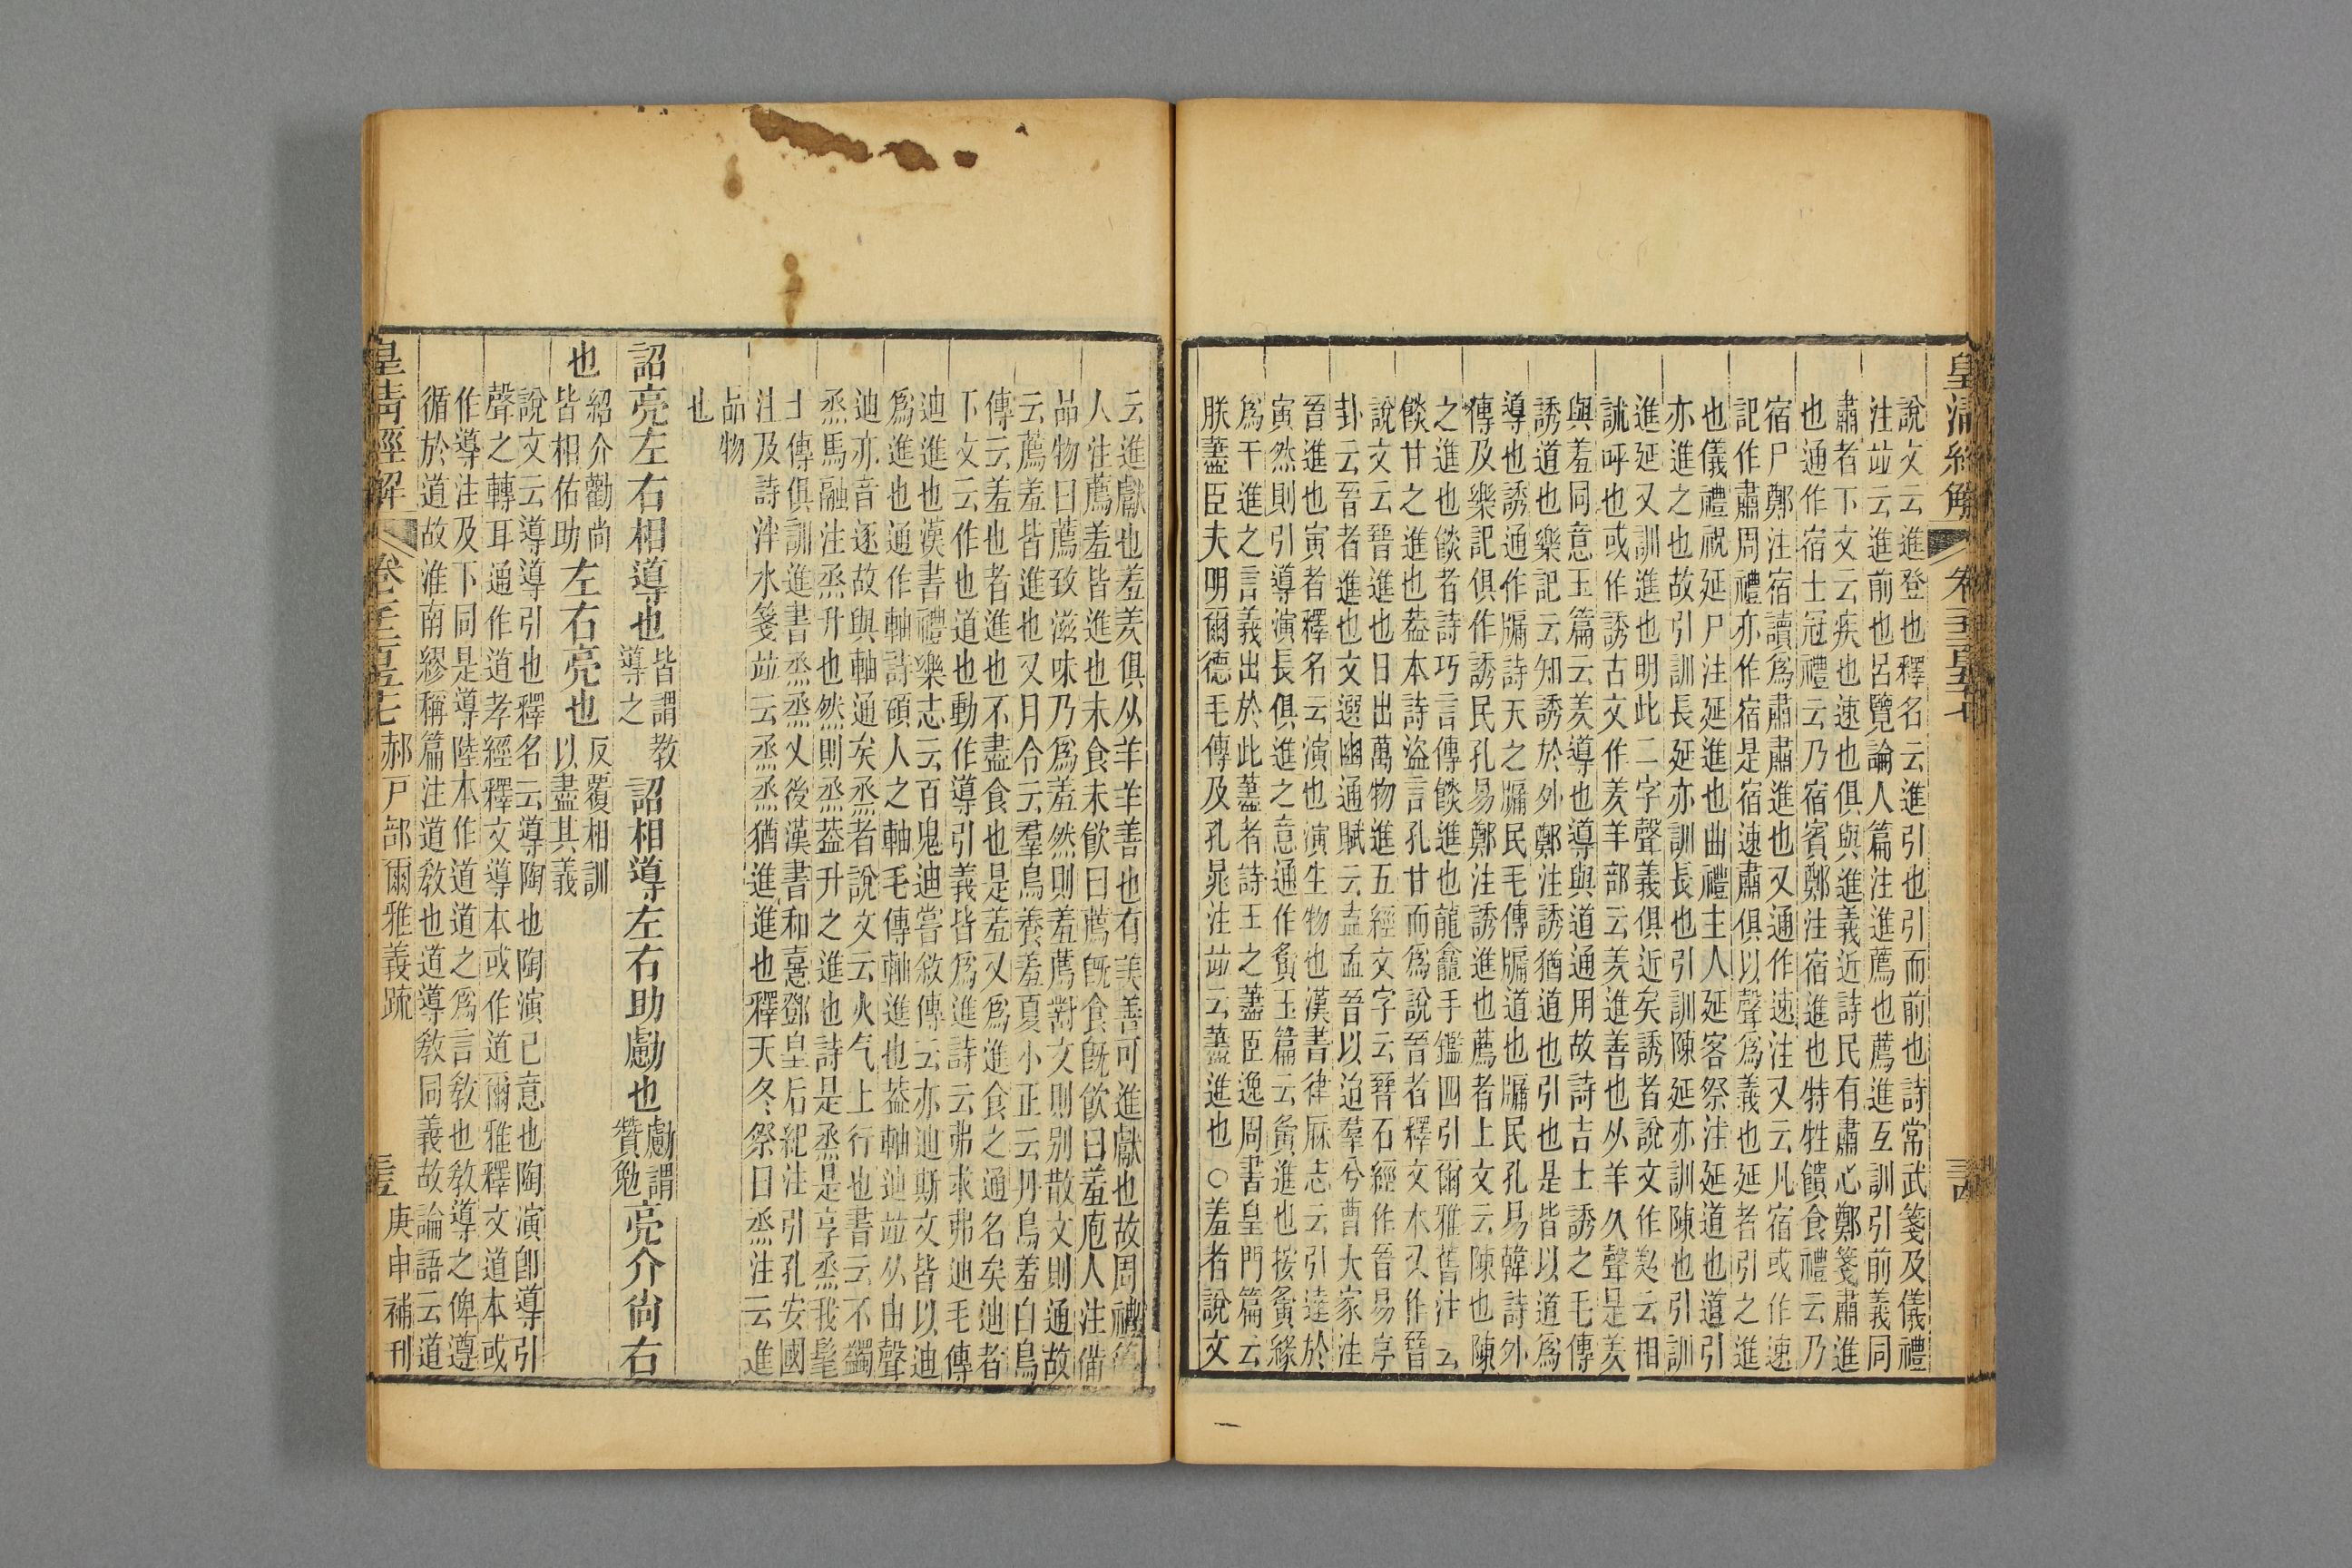 皇清經解
說文云進登也釋名云進引也引而前也詩常武箋及儀禮
注竝云進前也呂覽論人篇注進薦也薦進互訓引前義同
肅者下文云疾也速也俱與進義近詩民有肅心鄭箋肅進
也通作宿士冠禮云乃宿賓鄭注宿進也特牲饋食禮云乃
宿尸鄭注宿讀爲肅肅進也又通作速注又云凡宿或作速
記作肅周禮亦作宿是宿速肅俱以聲爲義也延者引之進
也儀禮祝延尸注延進也曲禮主人延客祭注延道也道引
亦進之也故引訓長延亦訓長也引訓陳延亦訓陳也引訓
進延又訓進也明此二字聲義俱近矣誘者說文作䛻云相
訹呼也或作誘古文作羑羊部云羑進善也从羊久聲是羑
與羞同意玉篇云羑導也導與道通用故詩吉士誘之毛傳
誘道也樂記云知誘於外鄭注誘猶道也引也是皆以道爲
導也誘通作牖詩天之牖民毛傳牖道也牖民孔易韓詩外
傳及樂記俱作誘民孔易鄭注誘進也薦者上文云陳也陳
之進也餤者詩巧言傳餤進也龍龕手鑑四引爾雅舊注云
餤甘之進也葢本詩盜言孔甘而爲說晉者釋文本又作晉
說文云晉進也日出萬物進五經文字云晉石經作晉易序
卦云晉者進也文選幽通賦云盍孟晉以迨羣兮曹大家注
晉進也寅者釋名云演也演生物也漢書律厤志云引達於
寅然則引導演長俱進之意通作夤玉篇云夤進也按夤緣
爲干進之言義出於此藎者詩王之藎臣逸周書皇門篇云
朕藎臣夫明爾德毛傳及孔晁注竝云藎進也○羞者說文
云進獻也羞羑俱从羊羊善也有美善可進獻也故周禮
人注薦羞皆進也未食未飮曰薦旣食旣飮曰羞庖人注備
品物曰薦致滋味乃爲羞然則羞薦對文則別散文則通故
云薦羞皆進也又月令云羣鳥養羞夏小正云丹鳥羞白鳥
傳云羞也者進也不盡食也是羞又爲進食之通名矣迪者
下文云作也道也動作導引義皆爲進詩云弗求弗迪毛傳
迪進也漢書禮樂志云百鬼迪嘗敘傳云亦迪斯文皆以迪
爲進也通作軸詩碩人之軸毛傳軸進也葢軸迪竝从由聲
迪亦音逐故與軸通矣烝者說文云火气上行也書云不蠲
烝馬融注烝升也然則烝葢升之進也詩是烝是享烝我髦
士傳俱訓進書烝烝乂後漢書和憙鄧皇后紀注引孔安國
注及詩泮水箋竝云烝烝猶進進也釋天冬祭曰烝注云進
品物
也
詔亮左右相導也皆謂教導之詔相導左右助勴也勴謂贊勉亮介尙右
也紹介勸尚皆相佑助左右亮也反覆相訓以盡其義
說文云導導引也釋名云導陶也陶演己意也陶演卽導引
聲之轉耳通作道孝經釋文導本或作道爾雅釋文道本或
作導注及下同是導陸本作道道之爲言教也教導之俾遵
循於道故淮南繆稱篇注道教也道導教同義故論語云道
皇清經解 郝戶部爾雅義疏 庚申補刊